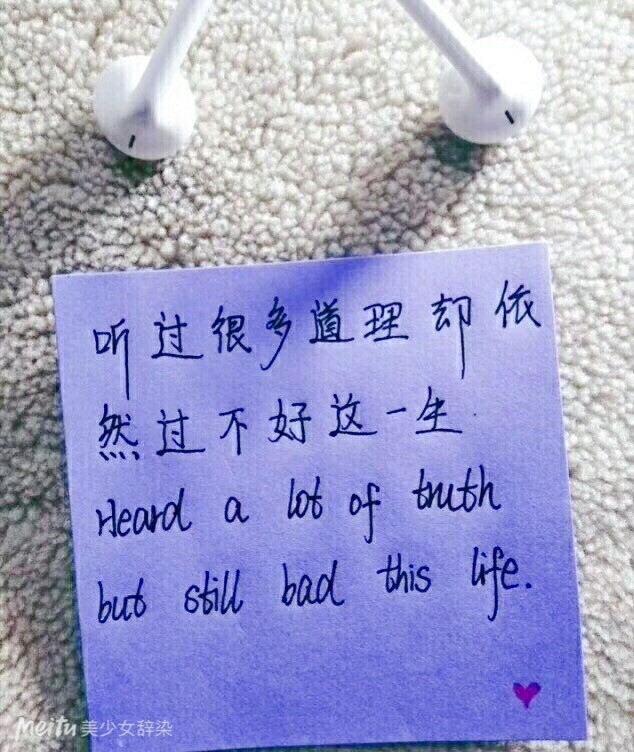 听过很多道理却依
然过不好这一生
Heard a lot of truth
but still bad this life.
Meitu 美少女辞染